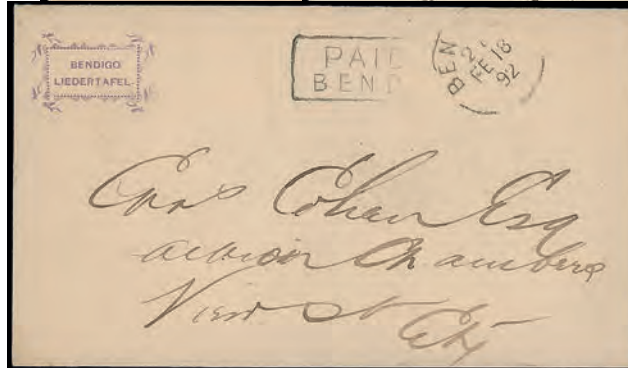 BENDIGO
LIEDERTAFEL
PAID
BEND
BEN
FE 18
92
Cohen Esq
Albion Chambers
View St
City